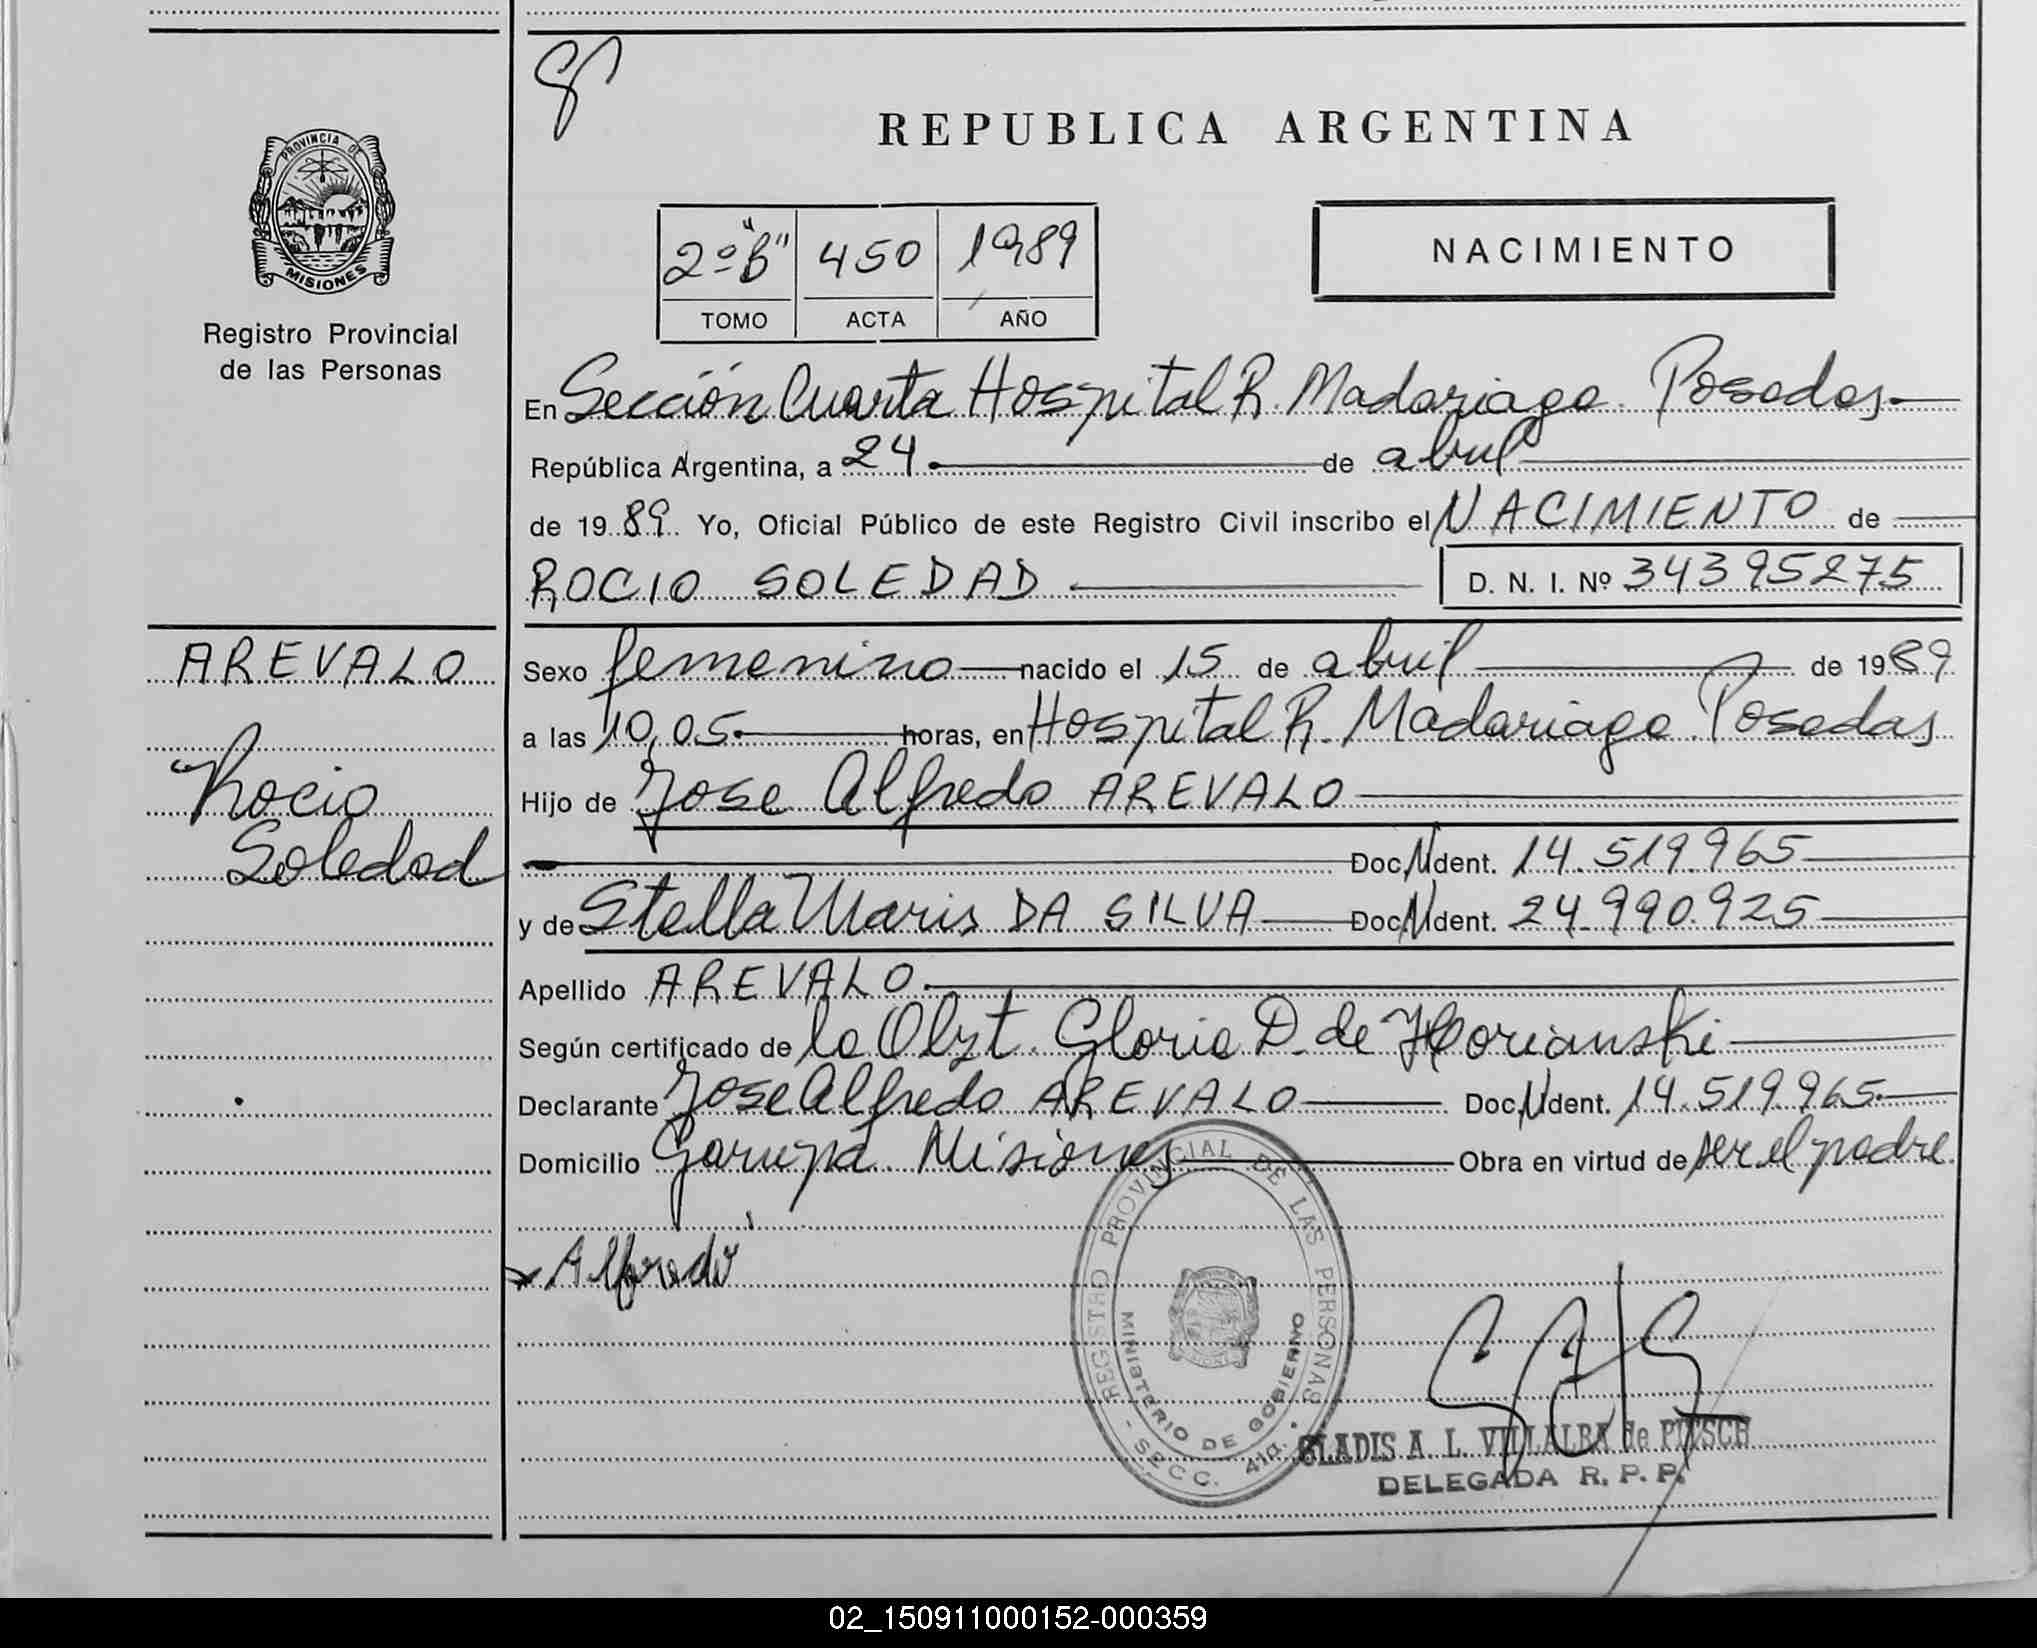 REPUBLICA ARGENTINA
PROVINCIA DE
MISIONES
Registro Provincial
de las Personas
2º "B" 450 1989
TOMO ACTA AÑO
NACIMIENTO
En Sección Cuarta Hospital R. Madariaga. Posadas
República Argentina, a 24 de abril
de 1989 Yo, Oficial Público de este Registro Civil inscribo el NACIMIENTO de
ROCIO SOLEDAD D. N. I. Nº 34395275
AREVALO
Rocio
Soledad
Sexo femenino nacido el 15 de abril de 1989
a las 10,05 horas, en Hospital R. Madariaga. Posadas
Hijo de Jose Alfredo AREVALO
Doc. Ident. 14.519.965
y de Stella Maris DA SILVA Doc. Ident. 24.990.925
Apellido AREVALO
Según certificado de la Obst. Gloria D. de
Declarante Jose Alfredo AREVALO Doc. Ident. 14.519.965
Domicilio Garupá. Misiones Obra en virtud de ser el padre
Alfredo
REGISTRO PROVINCIAL DE LAS PERSONAS
MINISTERIO DE GOBIERNO
SECC. 4ta.
GLADIS A. L. VILLALBA de
DELEGADA R. P. P.
02_150911000152-000359